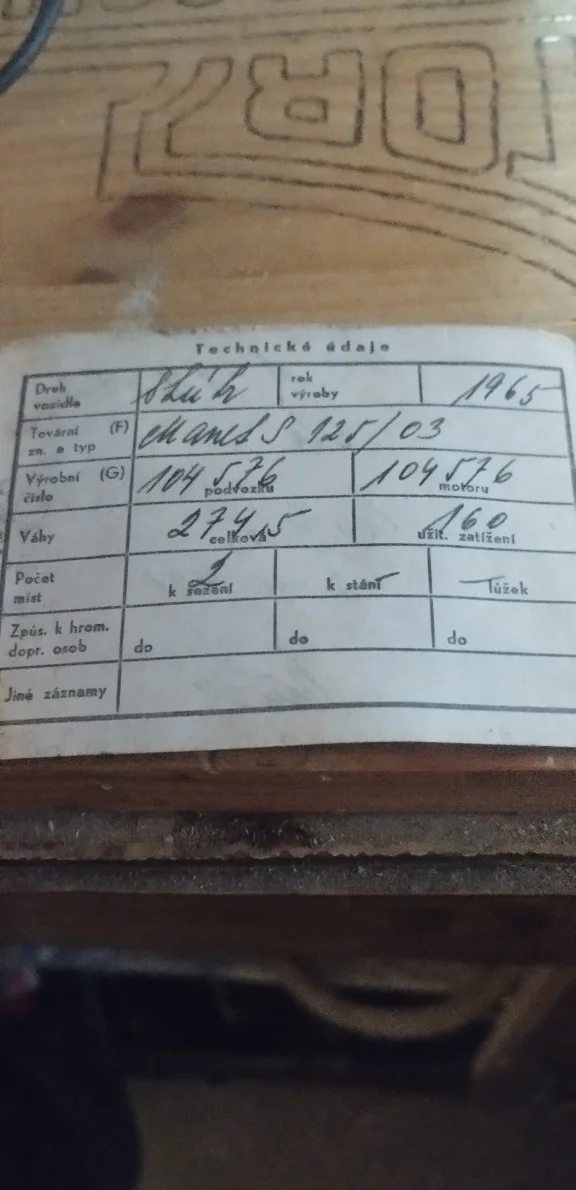 Technické údaje
Druh vozidla skútr rok výroby 1965
Tovární (F) zn. a typ Manet S 125/03
Výrobní (G) číslo 104576 podvozku 104576 motoru
Váhy 274,5 celková 160 užit. zatížení
Počet míst 2 k sezení k stání lůžek
Způs. k hrom. dopr. osob do do do
Jiné záznamy